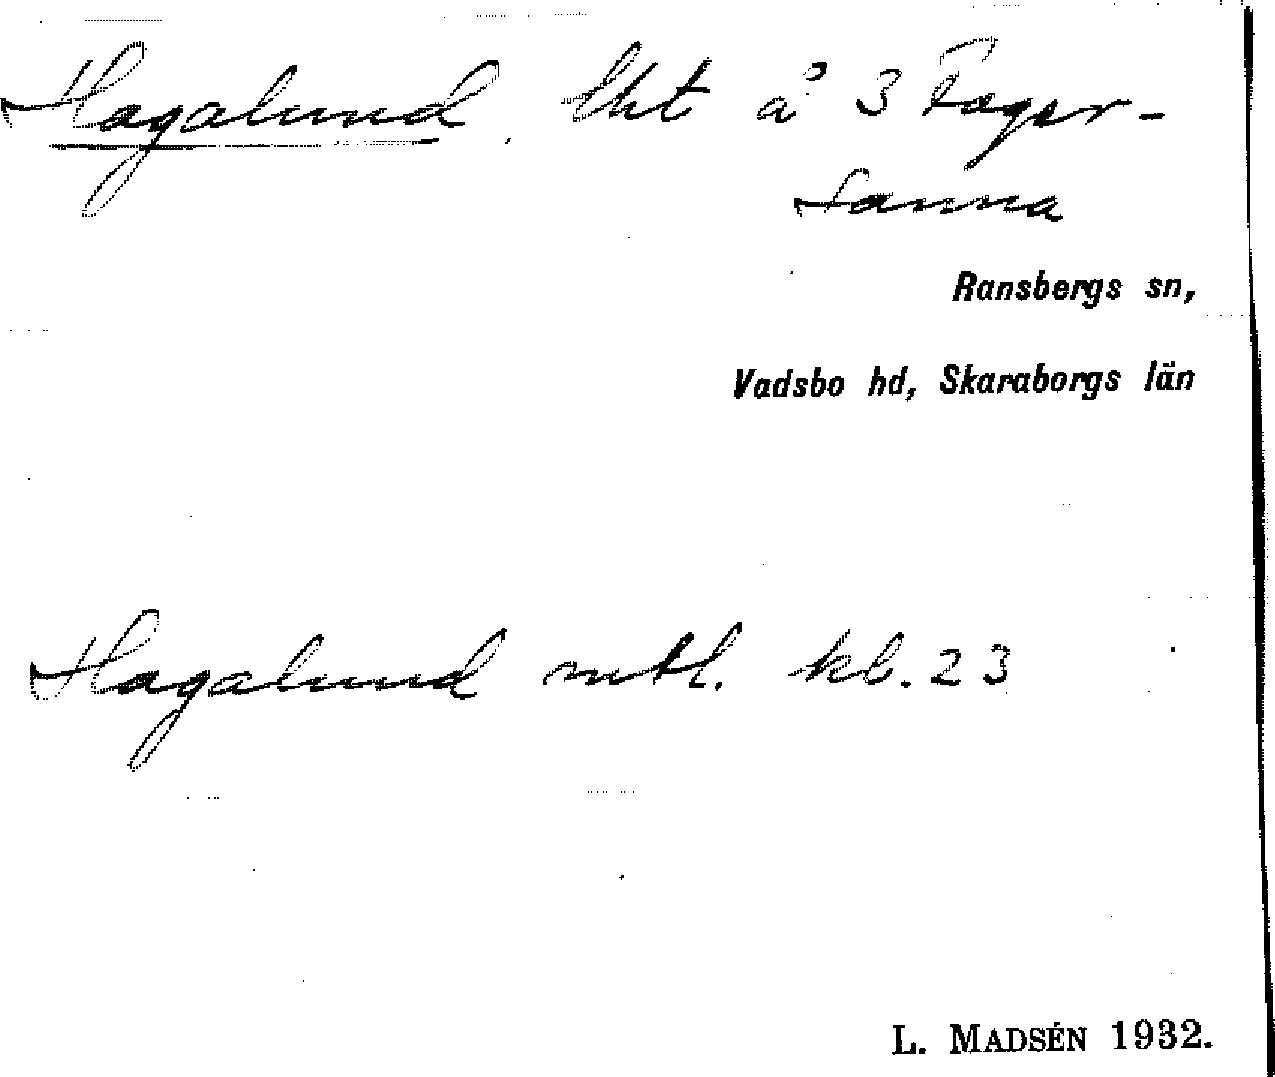 Hagalund, lht å 3 Fager-
sanna
Ransbergs sn,
Vadsbo hd, Skaraborgs län
Hagalund mtl. kb. 23
L. MADSÉN 1932.